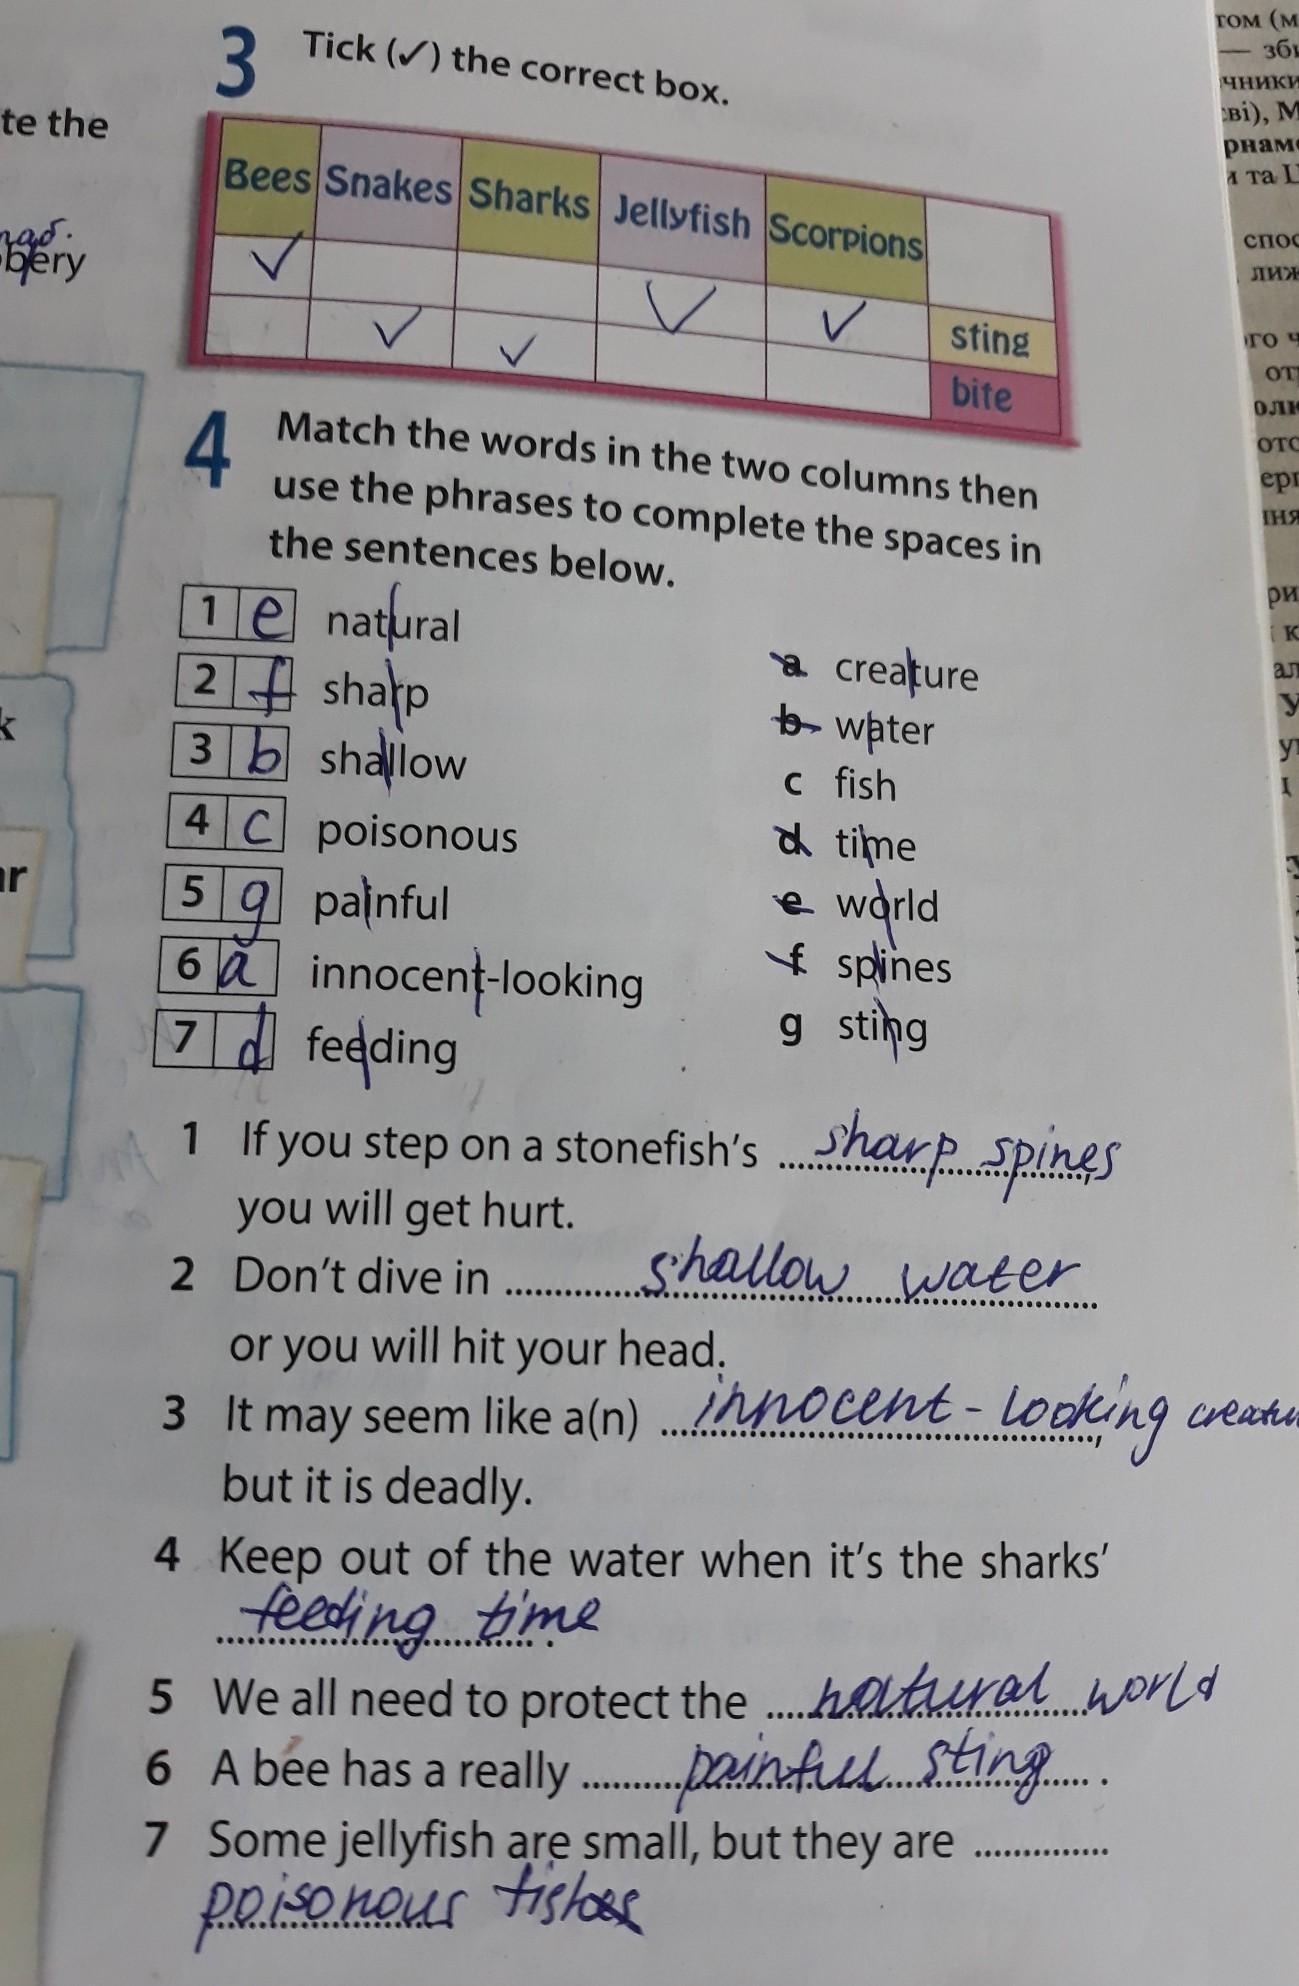 3 Tick (✓) the correct box.
te the
Bees Snakes Sharks Jellyfish Scorpions
✓ ✓ ✓ sting
✓ ✓ bite
bery
4 Match the words in the two columns then
use the phrases to complete the spaces in
the sentences below.
1 e natural
2 f sharp
3 b shallow
4 c poisonous
5 g painful
6 a innocent-looking
7 d feeding
a creature
b water
c fish
d time
e world
f spines
g sting
1 If you step on a stonefish's sharp spines,
you will get hurt.
2 Don't dive in shallow water
or you will hit your head.
3 It may seem like a(n) innocent-looking creatu,
but it is deadly.
4 Keep out of the water when it's the sharks'
feeding time.
5 We all need to protect the natural world
6 A bee has a really painful sting.
7 Some jellyfish are small, but they are
poisonous fish
том (м
— зби
чники
ві), М
рнам
та Ц
спос
лиж